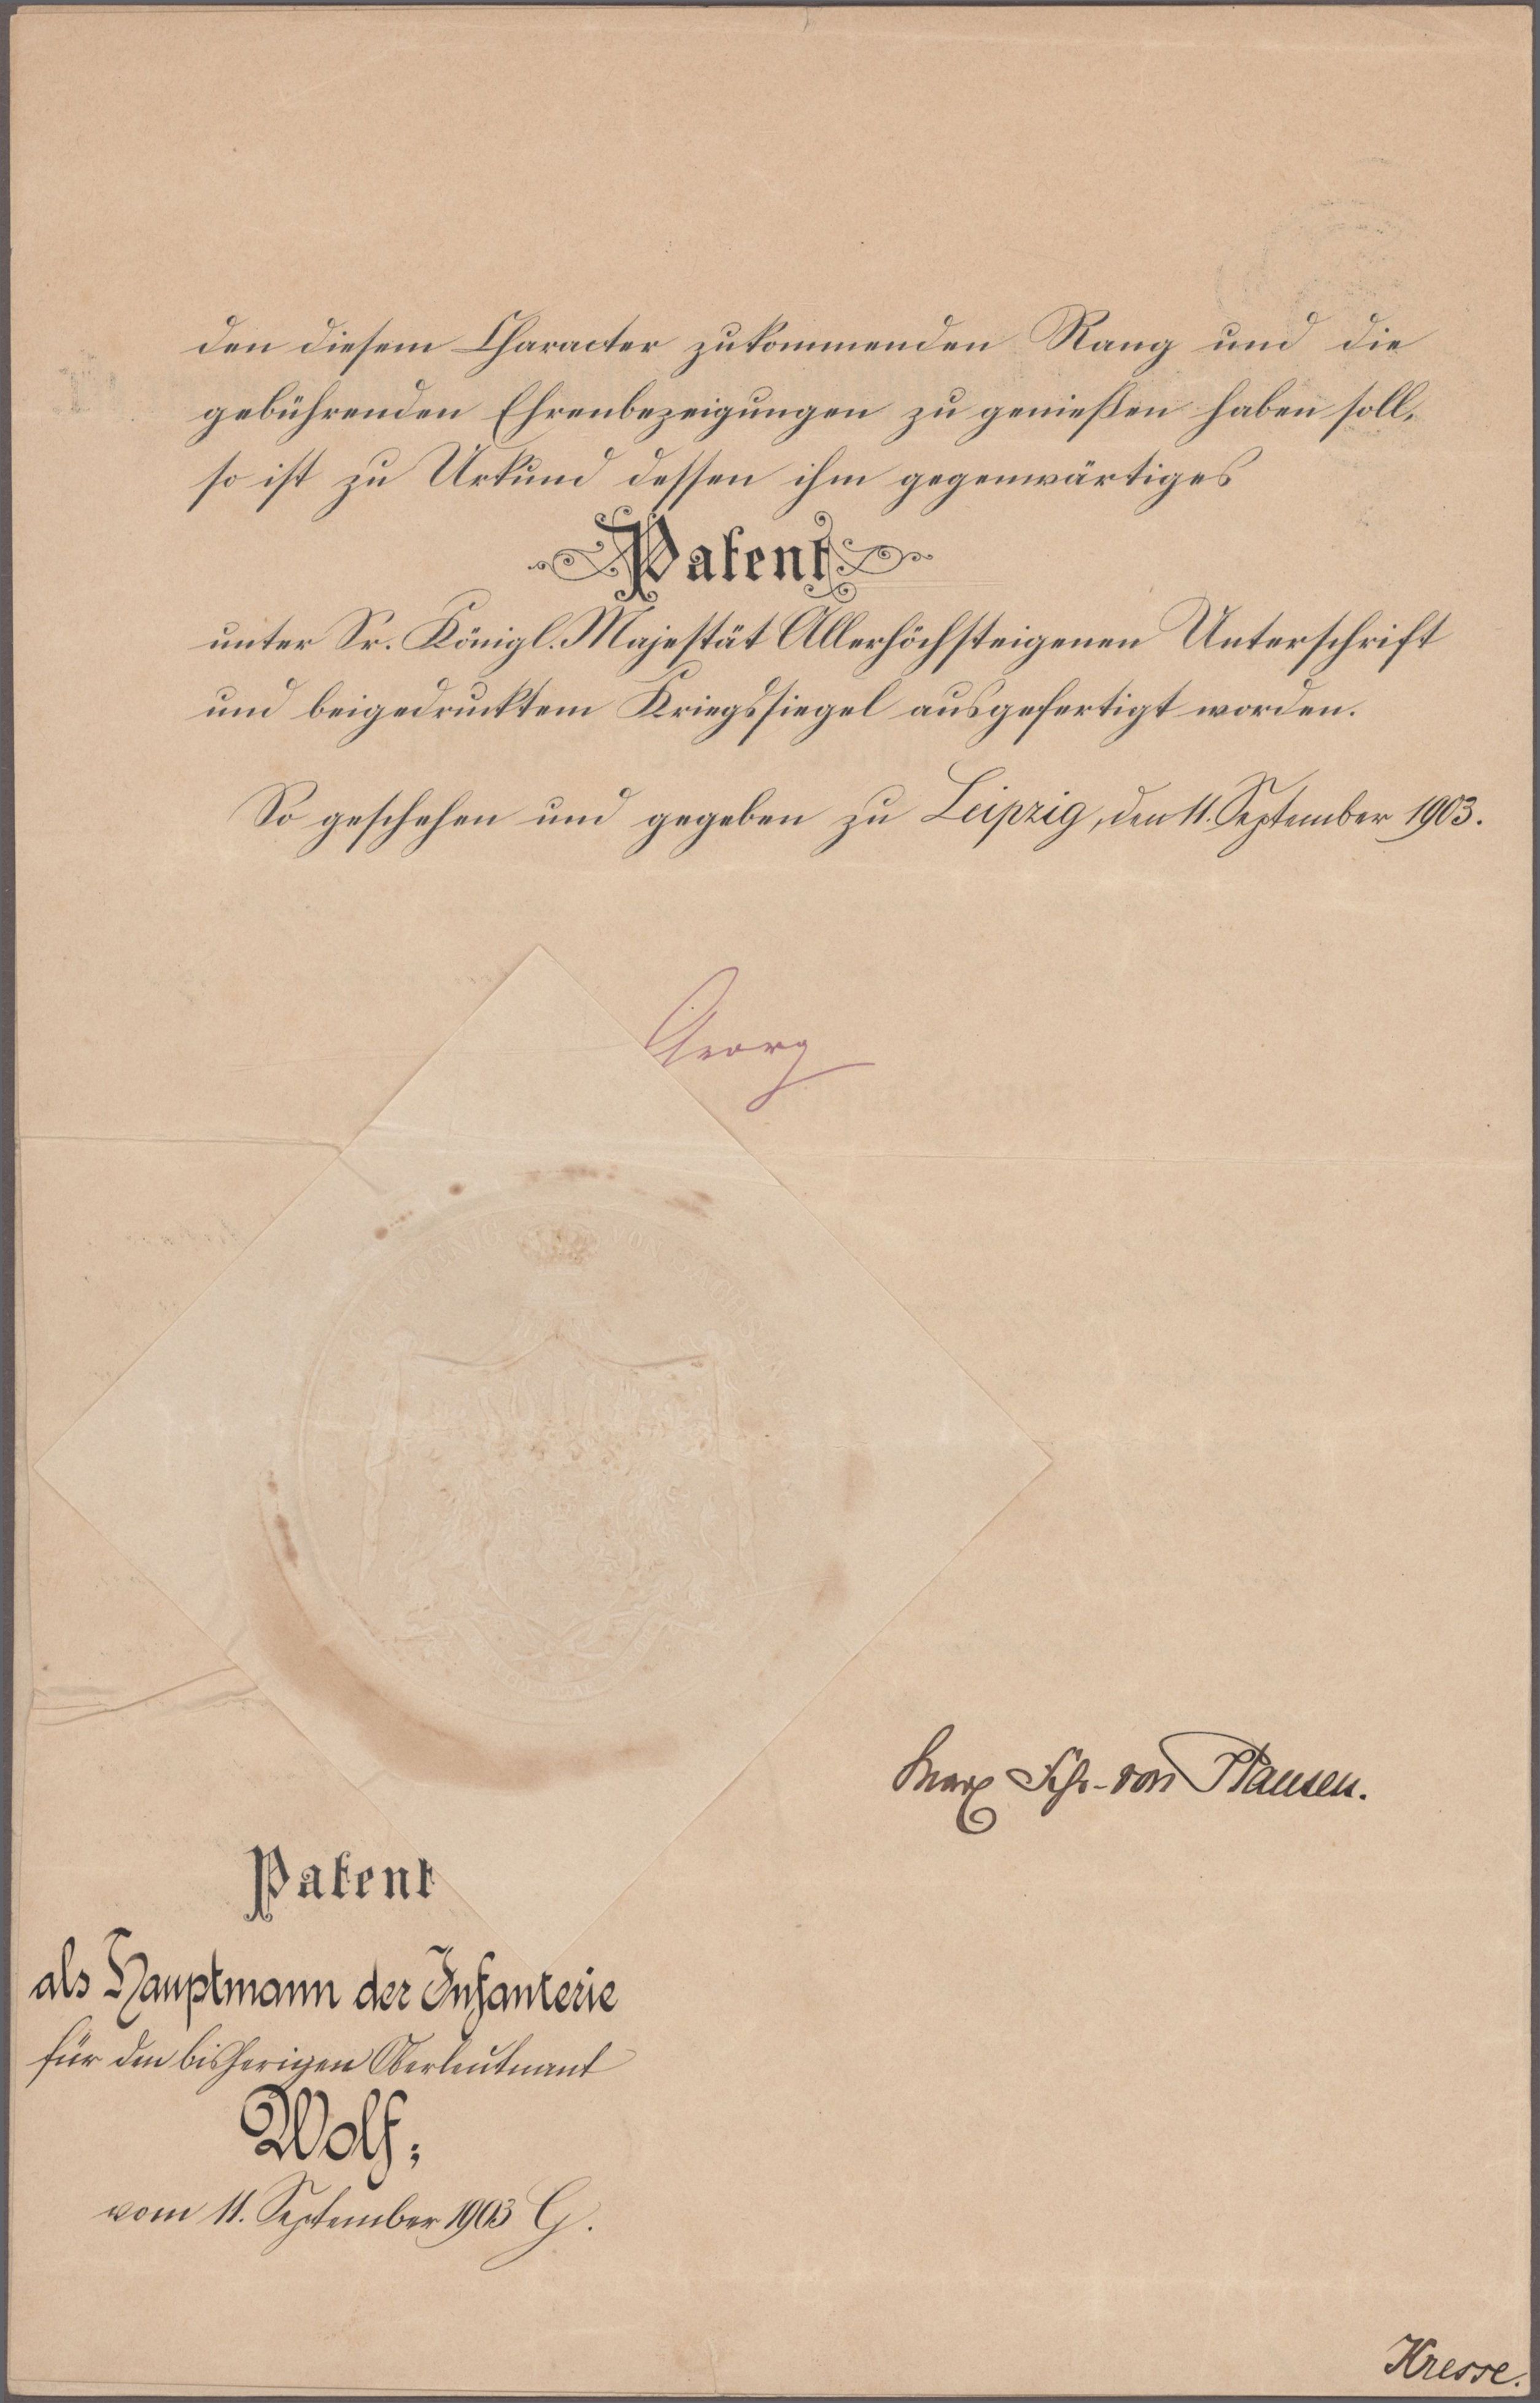 den diesem Character zukommenden Rang und die
gebührenden Ehrenbezeigungen zu genießen haben soll,
so ist zu Urkund dessen ihm gegenwärtiges
Patent
unter Sr. Königl. Majestät Allerhöchsteigenen Unterschrift
und beigedrucktem Kriegssiegel ausgefertigt worden.
So geschehen und gegeben zu Leipzig, den 11. September 1903.
Georg
KOENIG VON SACHSEN
Max Fhr. von Hausen.
Patent
als Hauptmann der Infanterie
für den bisherigen Oberleutnant
Wolf,
vom 11. September 1903 G.
Kresse.